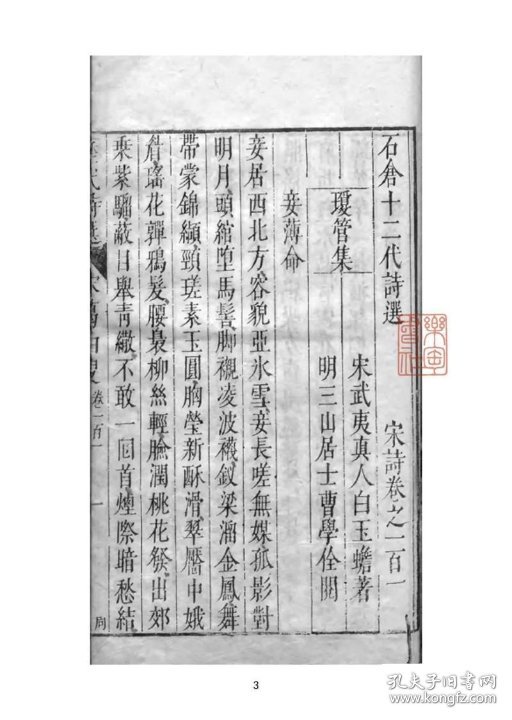 石倉十二代詩選
宋詩卷之一百一
瓊管集
宋武夷真人白玉蟾著
明三山居士曹學佺閱
妾薄命
妾居西北方容貌亞氷雪妾長嗟無媒孤影對
明月頭綰墮馬髻脚襯凌波襪釵梁溜金鳳舞
帶蒙錦纈頸瑳素玉圓胸瑩新酥滑翠靨中娥
眉瑤花嚲鴉髮腰裊柳絲輕臉潤桃花發出郊
乗紫騮蔽日舉靑繖不敢一囬首煙際暗愁結
卷一百一
一
周
3
孔夫子旧书网